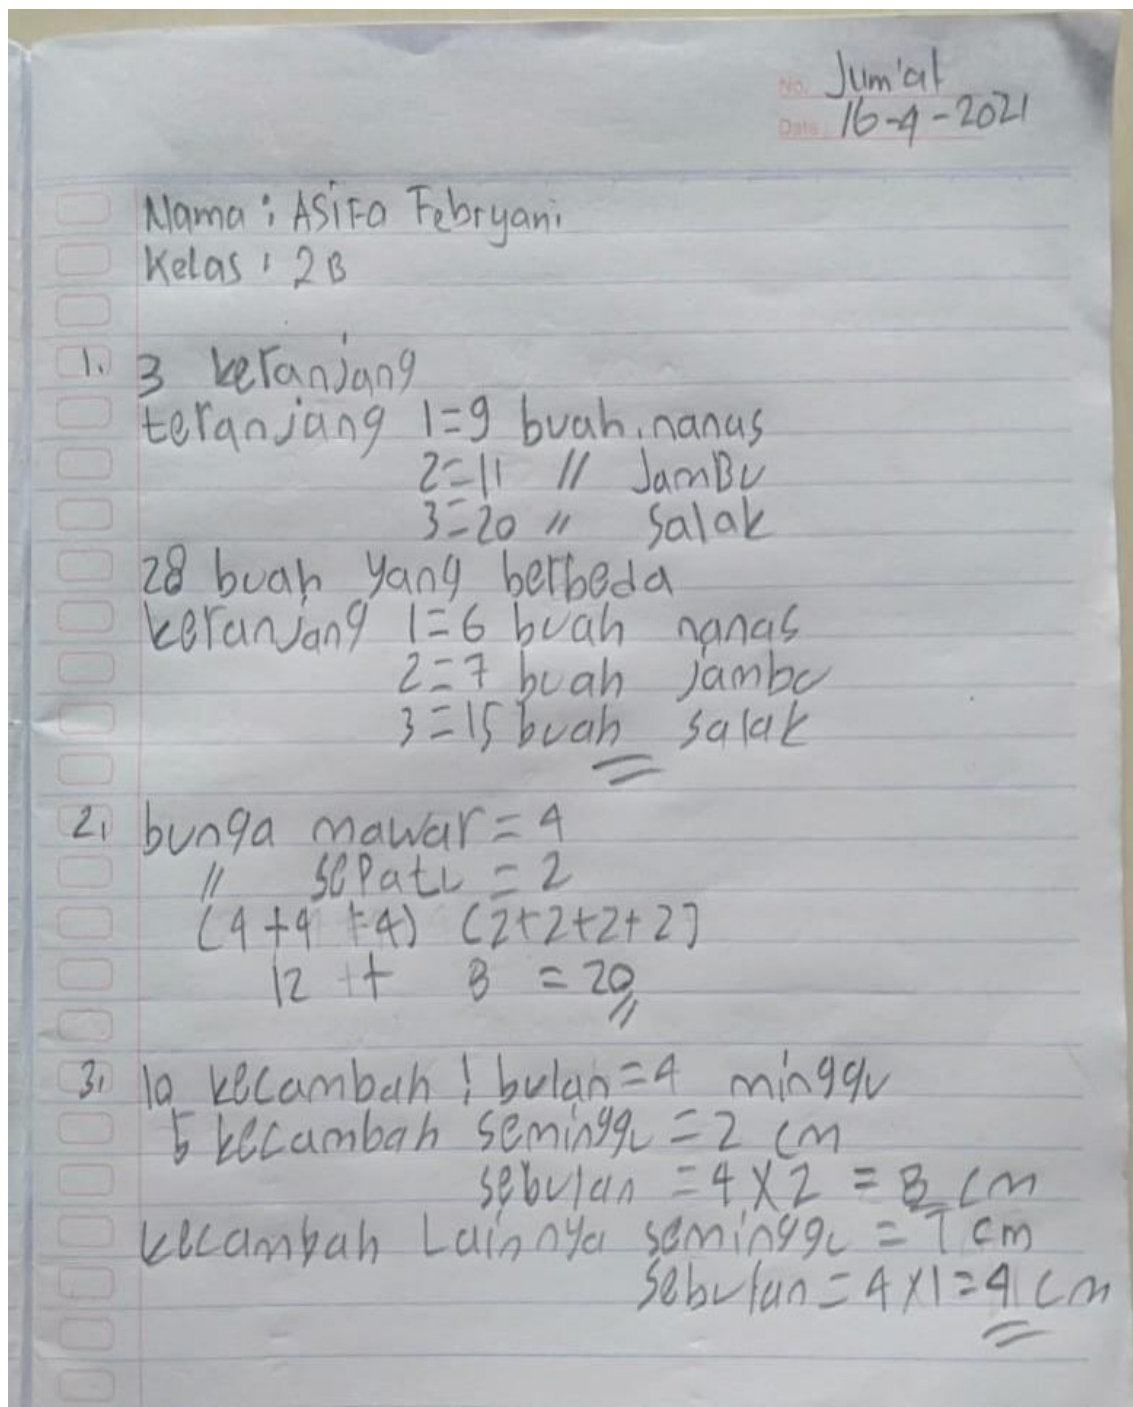 No. Jum'at
Date: 16-4-2021
Nama : ASiFa Febryani
Kelas : 2B
1. 3 keranjang
teranjang 1=9 buah nanas
2=11 // JamBu
3=20 // Salak
28 buah yang berbeda
keranjang 1=6 buah nanas
2=7 buah jambu
3=15 buah salak
2. bunga mawar = 4
// sepatu = 2
(4+4+4) (2+2+2+2)
12 + 8 = 20
3. 10 kecambah 1 bulan=4 minggu
5 kecambah seminggu = 2 cm
sebulan = 4 x 2 = 8 cm
kecambah Lainnya seminggu = 1 cm
Sebulan = 4 x 1 = 4 cm